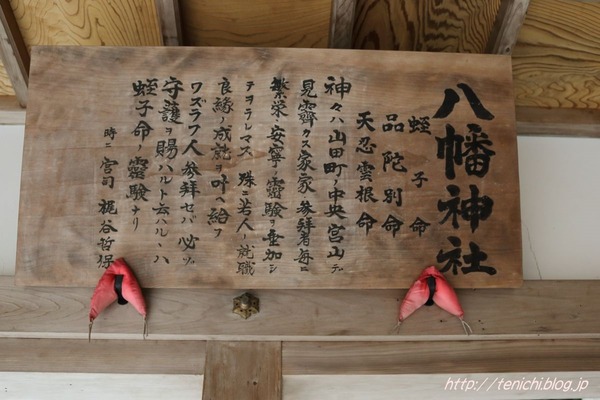 八幡神社
蛭子命
品陀別命
天忍雲根命
神々ハ山田町ノ中央宮山ニテ
見霽カス家家参拝者毎ニ
繁栄ト安寧ノ霊験ヲ垂加シ
テヲラレマス 殊ニ若人ノ就職
良縁ノ成就ヲ叶ヘ給フ
ワズラフ人参拝セバ必ヅ
守護ヲ賜ハルト云ハルハ
蛭子命ノ霊験ナリ
時ニ宮司 梶谷哲保
http://tenichi.blog.jp